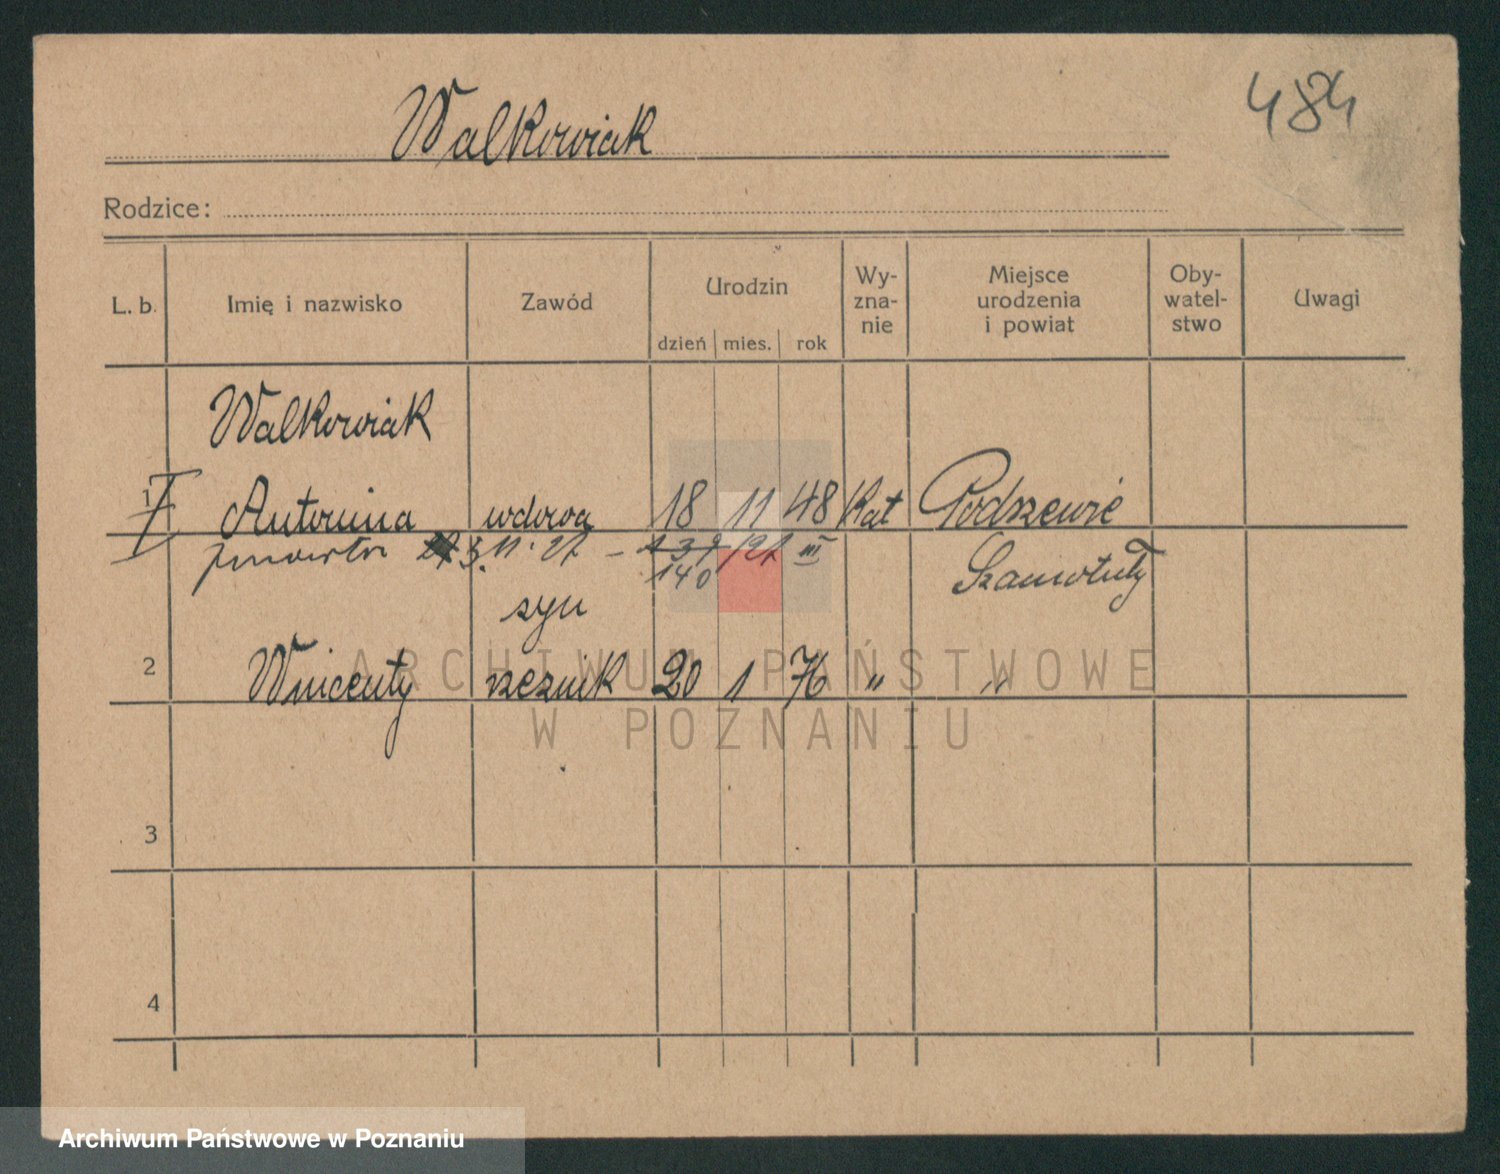 484
Walkowiak
Rodzice:
L. b. Imię i nazwisko Zawód Urodzin dzień mies. rok Wy-zna-nie Miejsce urodzenia i powiat Oby-watel-stwo Uwagi
Walkowiak
1 Antonina wdowa 18 11 48 Kat Podrzewie
3. 11. 27 - 139/27 III Szamotuły
140
syn
2 Wincenty rzeznik 20 1 76 " "
3
4
ARCHIWUM PAŃSTWOWE
W POZNANIU
Archiwum Państwowe w Poznaniu